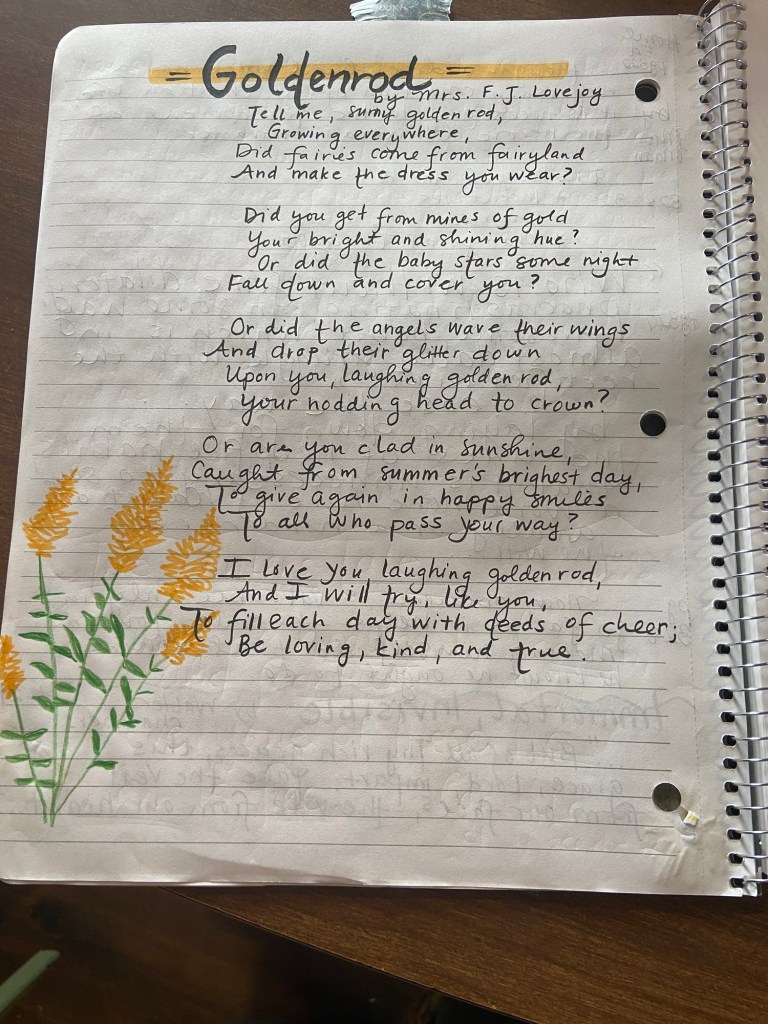 = Goldenrod =
by Mrs. F. J. Lovejoy
Tell me, sunny goldenrod,
Growing everywhere,
Did fairies come from fairyland
And make the dress you wear?
Did you get from mines of gold
Your bright and shining hue?
Or did the baby stars some night
Fall down and cover you?
Or did the angels wave their wings
And drop their glitter down
Upon you, laughing goldenrod,
Your nodding head to crown?
Or are you clad in sunshine,
Caught from summer's brighest day,
To give again in happy smiles
To all who pass your way?
I love you, laughing goldenrod,
And I will try, like you,
To fill each day with deeds of cheer;
Be loving, kind, and true.